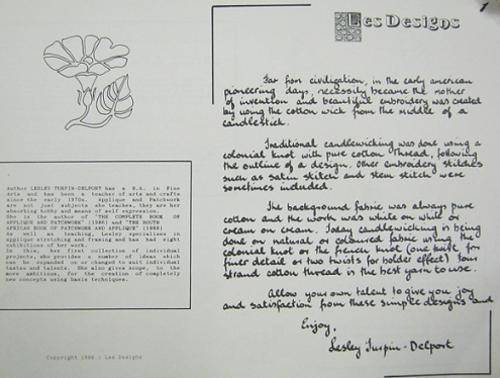 Author LESLEY TURPIN-DELPORT has a B.A. in Fine
Arts and has been a teacher of arts and crafts
since the early 1970s. Applique and Patchwork
are not just subjects she teaches, they are
absorbing hobby and means of self expression.
She is the author of "THE COMPLETE BOOK OF
APPLIQUE AND PATCHWORK" (1986) and "THE SOUTH
AFRICAN BOOK OF PATCHWORK AND APPLIQUE" (1988)
as well as teaching, Lesly specialises in
applique stretching and framing and has had eight
exhibitions of her work.
In this, her first collection of individual
projects, she provides a number of ideas which
can be expanded on or changed to suit individual
tastes and talents. She also gives scope, to the
more ambitious, for the creation of completely
new concepts using basic techniques.
Copyright 1988 : Les Designs
1
Les Designs
Far from civilization, in the early american
pioneering days, necessity became the mother
of invention and beautiful embroidery was created
by using the cotton wick from the middle of a
candlestick.
Traditional candlewicking was done using a
colonial knot with pure cotton thread, following
the outline of a design. Other embroidery stitches
such as satin stitch and stem stitch were
sometimes included.
The background fabric was always pure
cotton and the work was white on white or
cream on cream. Today candlewicking is being
done on natural or coloured fabric using the
colonial knot or the french knot (one knot for
finer detail or two twists for bolder effect) four
strand cotton thread is the best yarn to use.
Allow your own talent to give you joy
and satisfaction from these simple designs and
Enjoy.
Lesley Turpin-Delport